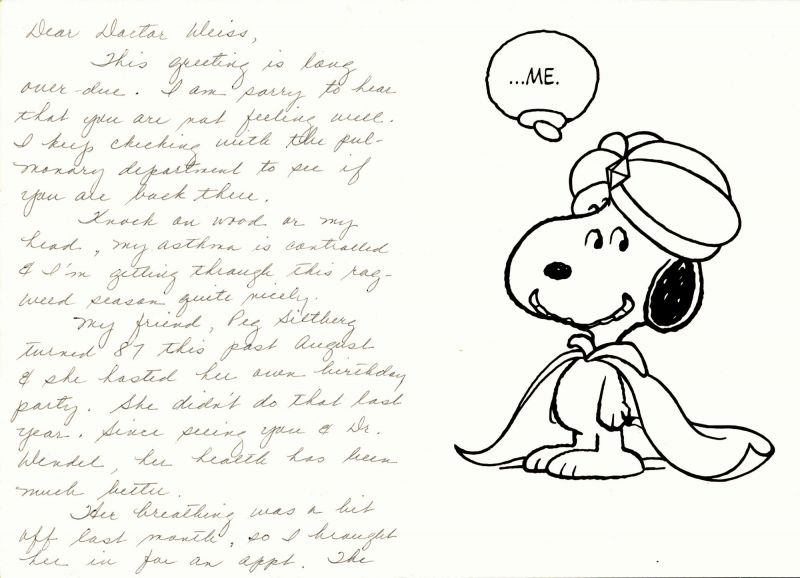 Dear Doctor Weiss,
This greeting is long
over-due. I am sorry to hear
that you are not feeling well.
I keep checking with the pul-
monary department to see if
you are back there.
Knock on wood or my
head, my asthma is controlled
& I'm getting through this rag-
weed season quite nicely.
My friend, Peg Siltberg
turned 87 this past August
& she hosted her own birthday
party. She didn't do that last
year. Since seeing you & Dr.
Wendel, her health has been
much better.
Her breathing was a bit
off last month, so I brought
her in for an appt. The
...ME.